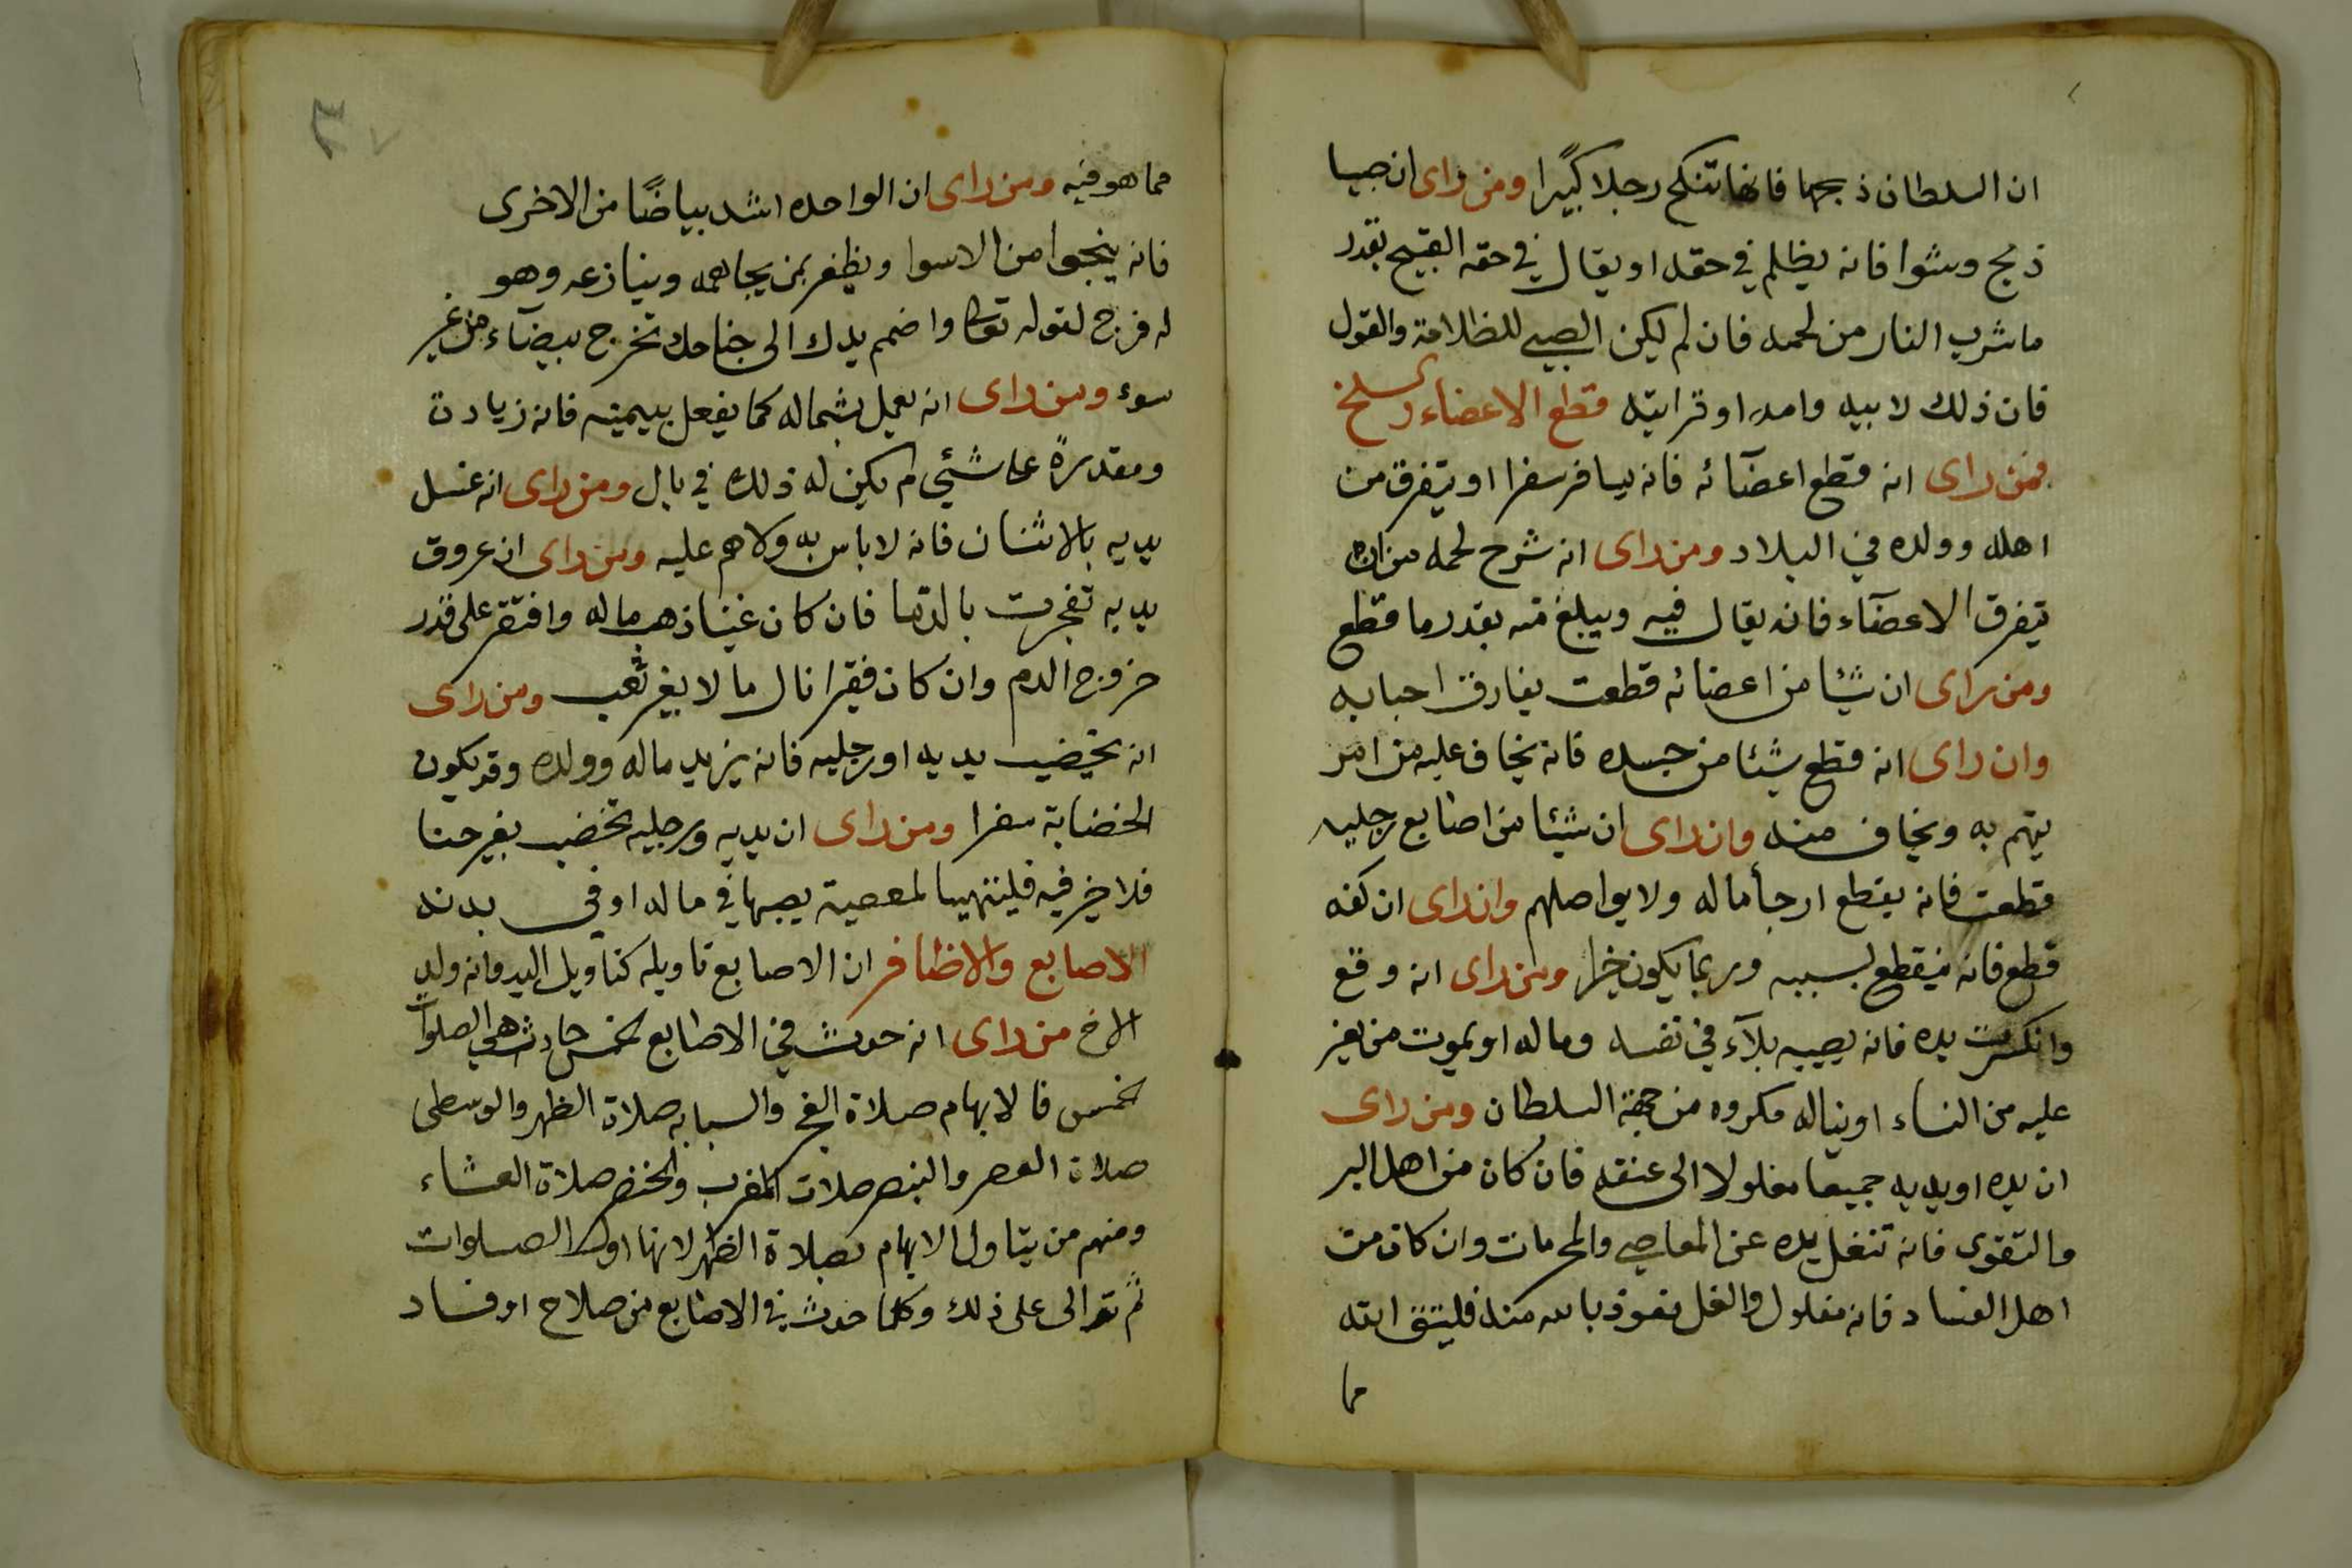 ان السلطان ذبحها فانها تنكح رجلا كبيرا ومن راى ان صبيا
ذبح وشوا فانه يظلم في حقه او يقال في حقه القبيح بقدر
ما شرب النار من لحمه فان لم يكن الصبي للظلامة والقول
فان ذلك لابيه وامه او قرابته قطع الاعضاء
فمن راى انه قطع اعضآئه فانه يسافر سفرا او يتفرق من
اهله وولده في البلاد ومن راى انه شرح لحمه من ان
يتفرق الاعضآء فانه يقال فيه ويبلغ منه بقدر ما قطع
ومن راى ان شيئا من اعضائه قطعت يفارق احبابه
وان راى انه قطع شيئا من جسده فانه يخاف عليه من امر
يتهم به ويخاف منه وان راى ان شيئا من اصابع رجليه
قطعت فانه يقطع ارحاماله ولا يواصلهم وان راى ان كفه
قطع فانه ينقطع بسببه وربما يكون خيرا ومن راى انه وقع
وانكسرت يده فانه يصيبه بلآء في نفسه وماله او يموت من يعز
عليه من النساء او يناله مكروه من جهة السلطان ومن راى
ان يده او يديه جميعا مغلولا الى عنقه فان كان من اهل البر
والتقوى فانه تنغل يده عن المعاصي والمحرمات وان كان من
اهل الفساد فانه مغلول والغل نعوذ بالله منه فليتق الله
مما
مما هو فيه ومن راى ان الواحده اشد بياضًا من الاخرى
فانه ينجوا من الاسوا ويظفر بمن يجاهمه وينازعه وهو
له فرج لقوله تعالى واضمم يدك الى جناحك تخرج بيضآء من غير
سوء ومن راى انه يعمل بشماله كما يفعل بيمينه فانه زيادة
ومقدرةً على شئي لم يكن له ذلك في بال ومن راى انه غسل
يديه بالاشنان فانه لا باس به ولا هم عليه ومن راى ان عروق
يديه تفجرت بالدما فان كان غنيا ذهب ماله وافتقر على قدر
خروج الدم وان كان فقيرا نال مالا بغير تعب ومن راى
انه يخضب يديه او رجليه فانه يزيد ماله وولده وقد يكون
الخضابة سفرا ومن راى ان يديه ورجليه تخضب بغير حنا
فلا خير فيه فلينتهيا لمعصية يصبها في ماله او في بدنه
الاصابع والاظافر ان الاصابع تاويله كتاويل اليد فانه ولد
الاخ من راى انه حدث في الاصابع لخمس حادث هي الصلوات
لخمس فالابهام صلاة الفجر والسبابه صلاة الظهر والوسطى
صلاة العصر والبنصر صلات المغرب والخنصر صلاة العشاء
ومنهم من يتاول الابهام بصلاة الظهر لانها اول الصلوات
ثم توالى على ذلك وكلما حدث في الاصابع من صلاح او فساد